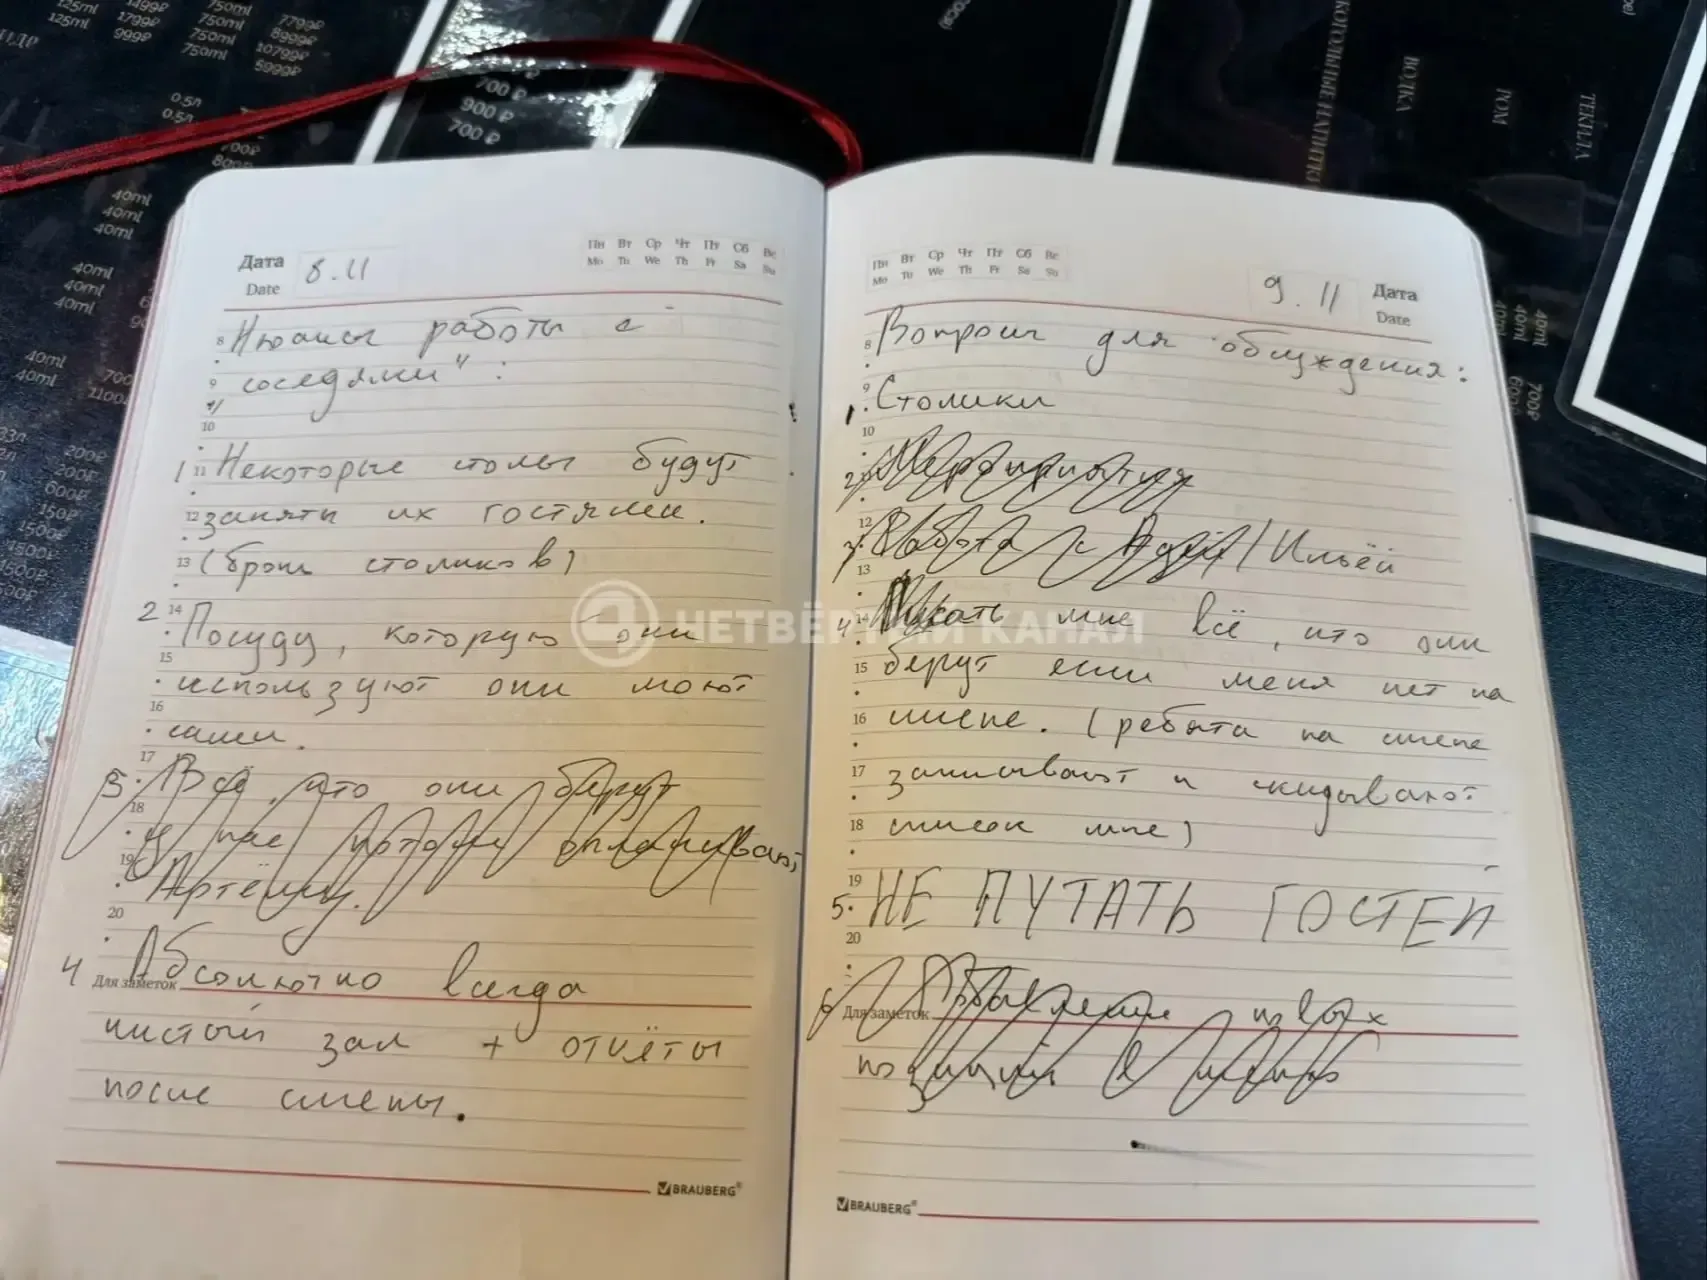 125ml 1499₽ 750ml 7799₽
125ml 1799₽ 750ml 8999₽
999₽ 750ml 10799₽
750ml 5999₽
0.5л
0.5л
700₽
40ml
40ml
40ml
40ml
40ml
40ml
40ml 700
40ml 1100₽
200₽
200₽
600₽
150₽
1500₽
1500₽
700 ₽
900 ₽
700 ₽
ВОДКА
РОМ
ТЕКИЛА
40ml 700₽
40ml
40ml
Дата 8.11
Date
Пн Вт Ср Чт Пт Сб Вс
Mo Tu We Th Fr Sa Su
8 Нюансы работы с
9 „соседями":
10
1 11 Некоторые столы будут
12 заняты их гостями.
13 (бронь столиков)
2 14 Посуду, которую они
15 используют они моют
16 сами.
3 17 Всё, что они берут
18 у нас потом оплачивают
19 Артёму.
20
4 Для заметок Абсолютно всегда
чистый зал + отчёты
после смены.
BRAUBERG®
Пн Вт Ср Чт Пт Сб Вс
Mo Tu We Th Fr Sa Su
9.11 Дата
Date
8 Вопросы для обсуждения:
9
1. Столики
10
2. Мероприятия
12
3. Работа с Адей/Ильёй
13
4 14 Писать мне всё, что они
15 берут если меня нет на
16 смене. (ребята на смене
17 записывают и скидывают
18 список мне)
19
5. НЕ ПУТАТЬ ГОСТЕЙ
20
6 Для заметок Добавление новых
позиций в меню
BRAUBERG®
ЧЕТВЁРТЫЙ КАНАЛ